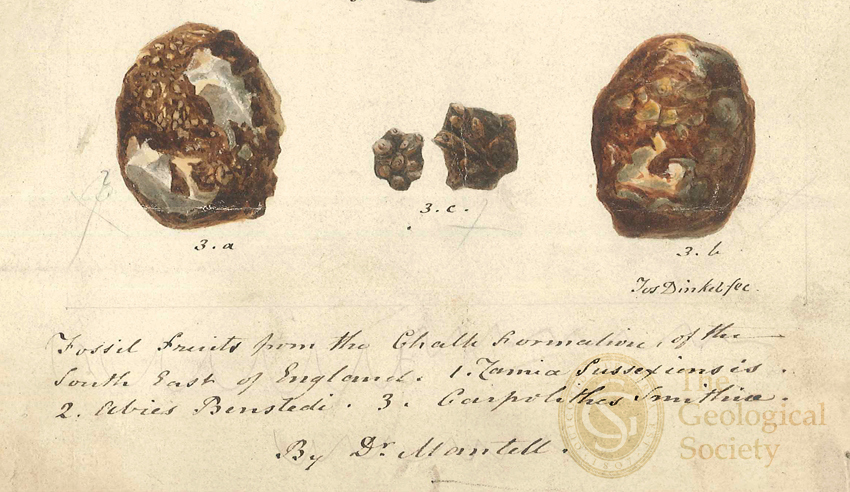 3. a
3. c.
3. b
Jos Dinkel fec.
Fossil Fruits from the Chalk Formation, of the
South East of England. 1. Zamia Sussexiensis.
2. Abies Benstedi. 3. Carpolithes Smithiæ.
By Dr. Mantell.
The
Geological
Society